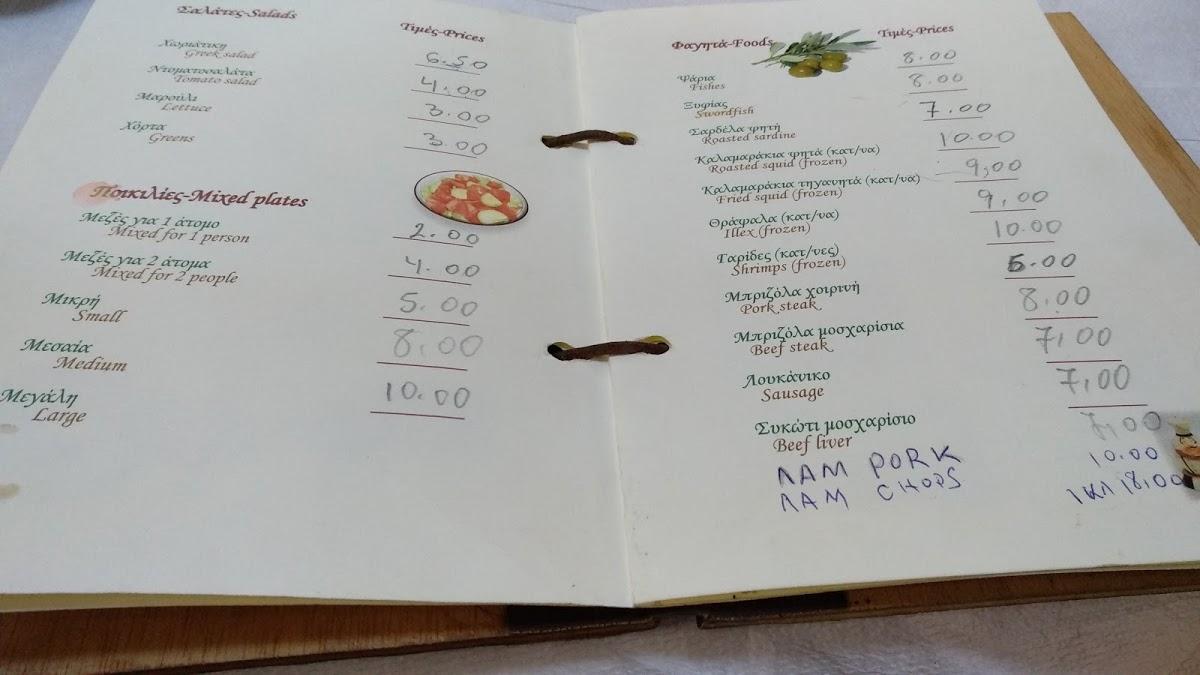 Σαλάτες-Salads
Τιμές-Prices
Χωριάτικη
Greek salad
6.50
Ντοματοσαλάτα
Tomato salad
4.00
Μαρούλι
Lettuce
3.00
Χόρτα
Greens
3.00
Ποικιλίες-Mixed plates
Μεζές για 1 άτομο
Mixed for 1 person
2.00
Μεζές για 2 άτομα
Mixed for 2 people
4.00
Μικρή
Small
5.00
Μεσαία
Medium
8,00
Μεγάλη
Large
10.00
Φαγητά-Foods
Τιμές-Prices
8.00
Ψάρια
Fishes
8.00
Ξυφίας
Swordfish
7.00
Σαρδέλα ψητή
Roasted sardine
10.00
Καλαμαράκια ψητά (κατ/να)
Roasted squid (frozen)
9,00
Καλαμαράκια τηγανητά (κατ/να)
Fried squid (frozen)
9,00
Θράψαλα (κατ/να)
Illex (frozen)
10.00
Γαρίδες (κατ/νες)
Shrimps (frozen)
6.00
Μπριζόλα χοιρινή
Pork steak
8.00
Μπριζόλα μοσχαρίσια
Beef steak
7,00
Λουκάνικο
Sausage
7,00
Συκώτι μοσχαρίσιο
Beef liver
7,00
ΛΑΜ PORK
10.00
ΛΑΜ CHOPS
1 ΚΙΛ 18,00